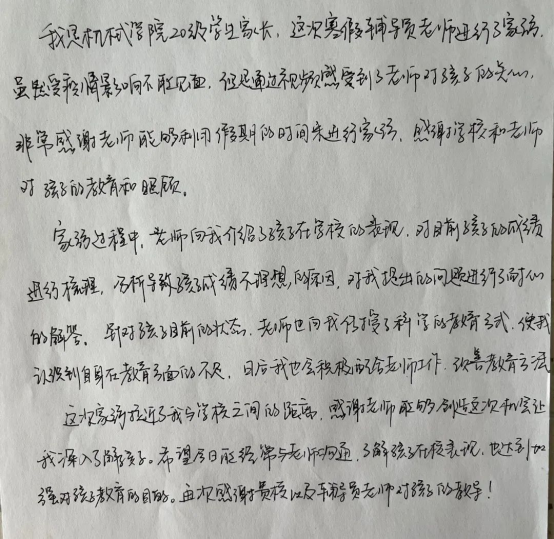 我是机械学院20级学生家长，这次寒假辅导员老师进行了家访，
虽然受疫情影响不能见面，但是通过视频感受到了老师对孩子的关心，
非常感谢老师能够利用假期的时间来进行家访，感谢学校和老师
对孩子的教育和照顾。
家访过程中，老师向我介绍了孩子在学校的表现，对目前孩子的成绩
进行梳理，分析导致孩子成绩不理想的原因，对我提出的问题进行了耐心
的解答。针对孩子目前的状态，老师也向我传授了科学的教育方式，使我
认识到自身在教育方面的不足，日后我也会积极配合老师工作，改善教育方法
这次家访拉近了我与学校之间的距离，感谢老师能够创造这次机会让
我深入了解孩子。希望今日能经常与老师沟通，了解孩子在校表现，也达到加
强对孩子教育的目的。再次感谢贵校以及辅导员老师对孩子的教导！